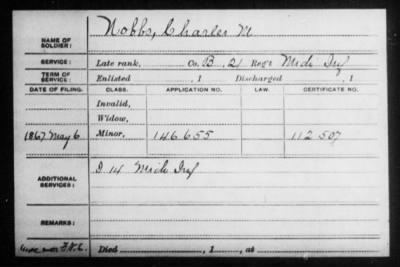 NAME OF SOLDIER: Nobbs, Charles M
SERVICE: Late rank, Co. B, 21 Reg't Mich Inf
TERM OF SERVICE: Enlisted , 1 Discharged , 1
DATE OF FILING. CLASS. APPLICATION NO. LAW. CERTIFICATE NO.
Invalid,
Widow,
1867 May 6 Minor, 146655 112507
ADDITIONAL SERVICES: D 14 Mich Inf
REMARKS:
Died , 1 , at